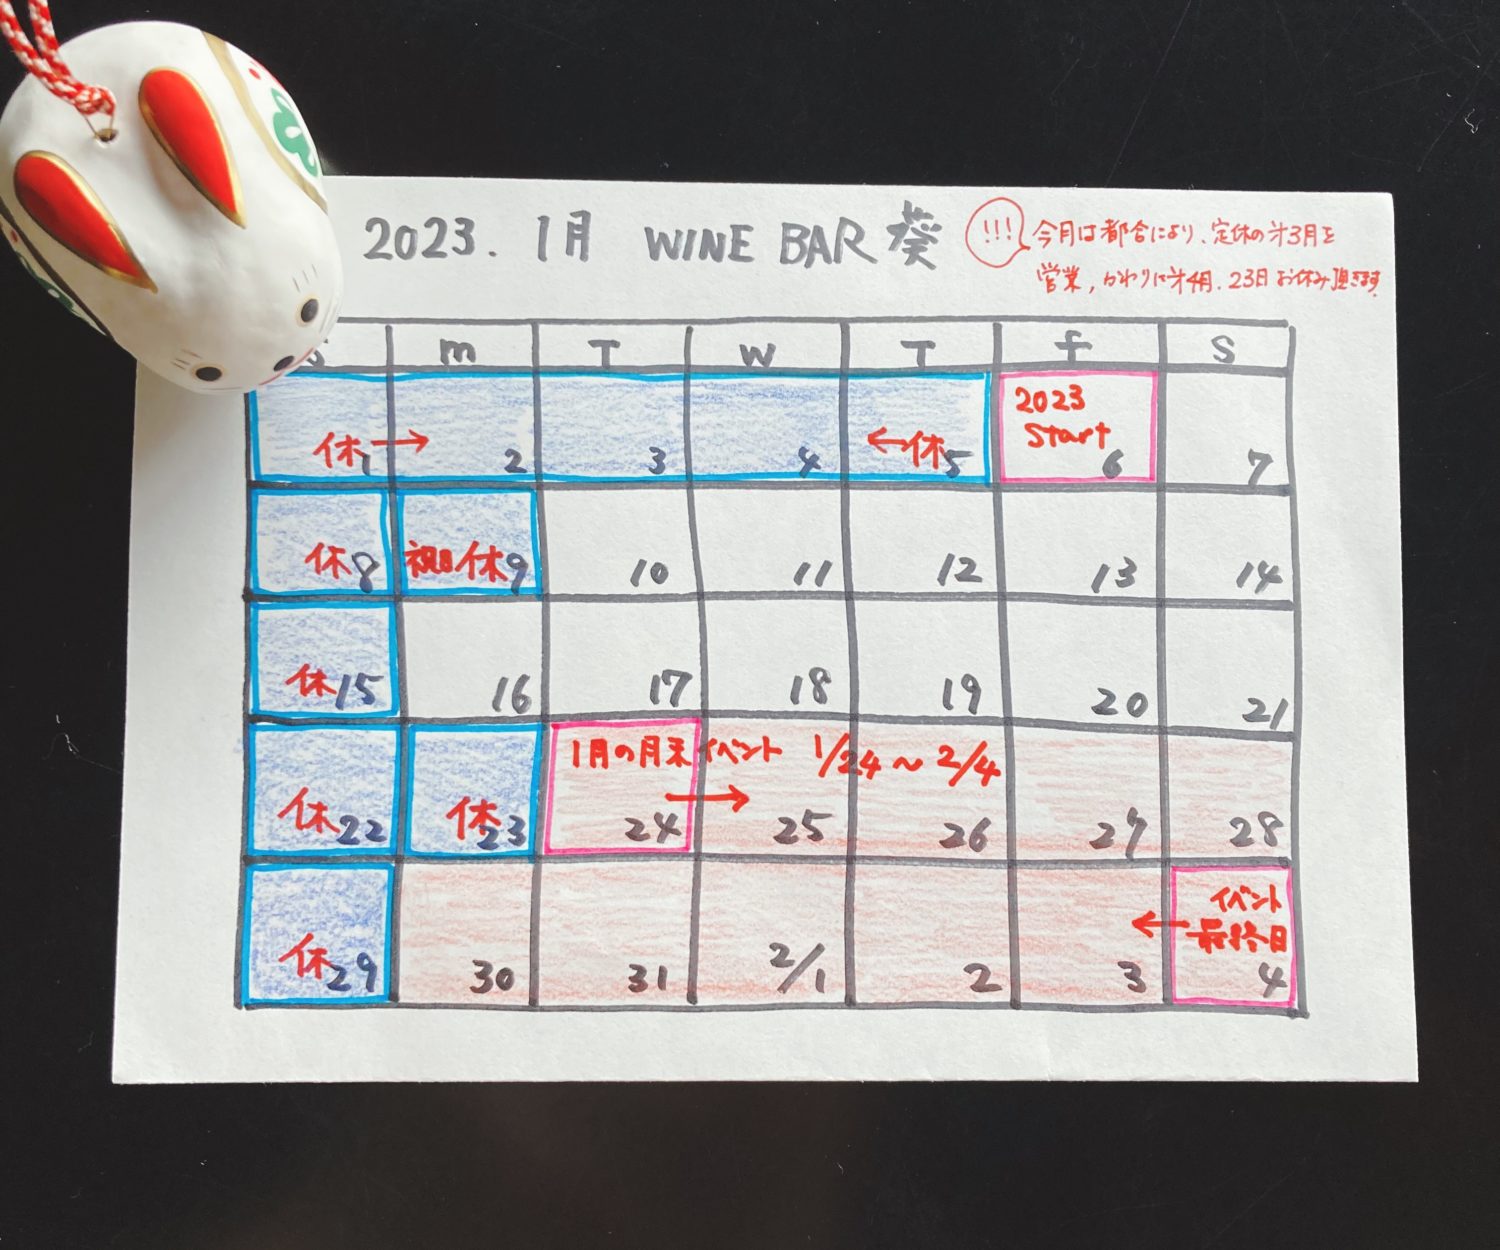 2023. 1月 WINE BAR 葵
!!! 今月は都合により、定休の才3月を
営業, かわりに才4月、23日お休み頂きます。
S m T W T f S
休1→ 2 3 4 ←休5 2023 Start 6 7
休8 祝日休9 10 11 12 13 14
休15 16 17 18 19 20 21
1月の月末イベント 1/24～2/4
→
休22 休23 24 25 26 27 28
イベント
← 最終日
休29 30 31 2/1 2 3 4